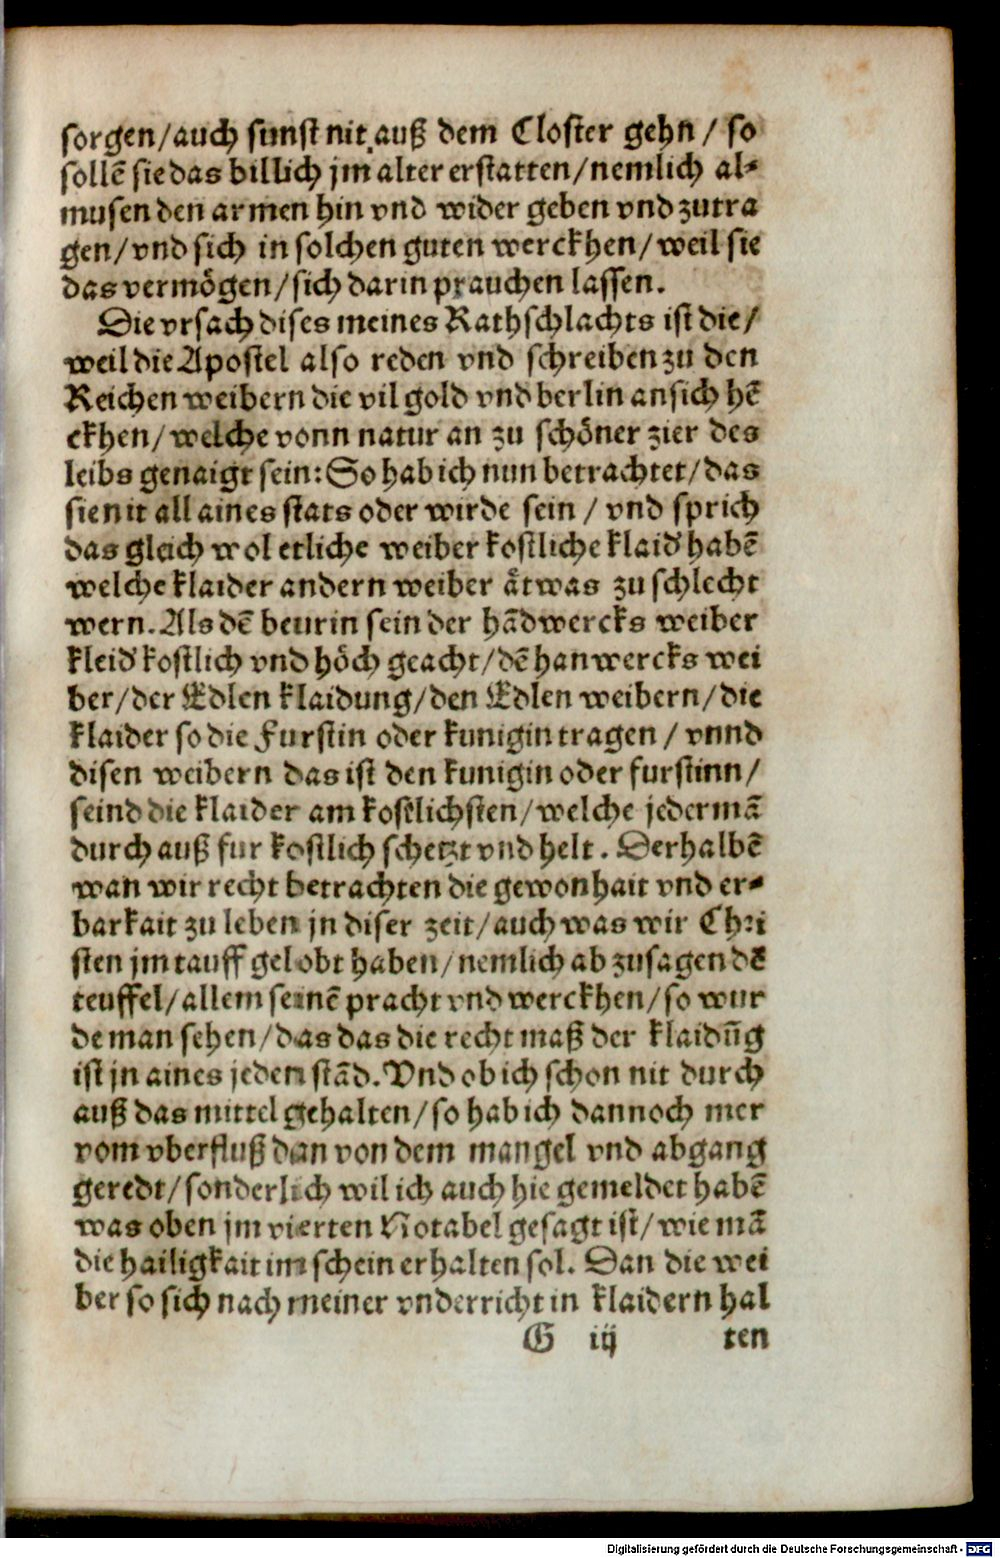 sorgen/auch sunst nit auß dem Closter gehn / so
sollē sie das billich jm alter erstatten/nemlich al-
musen den armen hin vnd wider geben vnd zutra
gen/vnd sich in solchen guten werckhen/weil sie
das vermögen/sich darin prauchen lassen.
Die vrsach dises meines Rathschlachts ist die/
weil die Apostel also reden vnd schreiben zu den
Reichen weibern die vil gold vnd berlin an sich hē
ckhen/welche vonn natur an zu schöner zier des
leibs genaigt sein: So hab ich nun betrachtet/das
sie nit all aines stats oder wirde sein / vnd sprich
das gleich wol etliche weiber kostliche klaid' habē
welche klaider andern weiber ätwas zu schlecht
wern. Als dē beurin sein der hādwercks weiber
kleid' kostlich vnd höch geacht/dē hanwercks wei
ber/der Edlen klaidung/den Edlen weibern/die
klaider so die Furstin oder kunigin tragen / vnnd
disen weibern das ist den kunigin oder furstinn/
seind die klaider am kostlichsten/welche jedermā
durch auß fur kostlich schetzt vnd helt. Derhalbē
wan wir recht betrachten die gewonhait vnd er-
barkait zu leben jn diser zeit/auch was wir Chri
sten jm tauff gelobt haben/nemlich ab zusagen dē
teuffel/allem seinē pracht vnd werckhen/so wur
de man sehen/das das die recht maß der klaidūg
ist jn aines jeden stād. Vnd ob ich schon nit durch
auß das mittel gehalten/so hab ich dannoch mer
vom vberfluß dan von dem mangel vnd abgang
geredt/sonderlich wil ich auch hie gemeldet habē
was oben jm vierten Notabel gesagt ist/wie mā
die hailigkait im schein erhalten sol. Dan die wei
ber so sich nach meiner vnderricht in klaidern hal
G iij ten
Digitalisierung gefördert durch die Deutsche Forschungsgemeinschaft - DFG